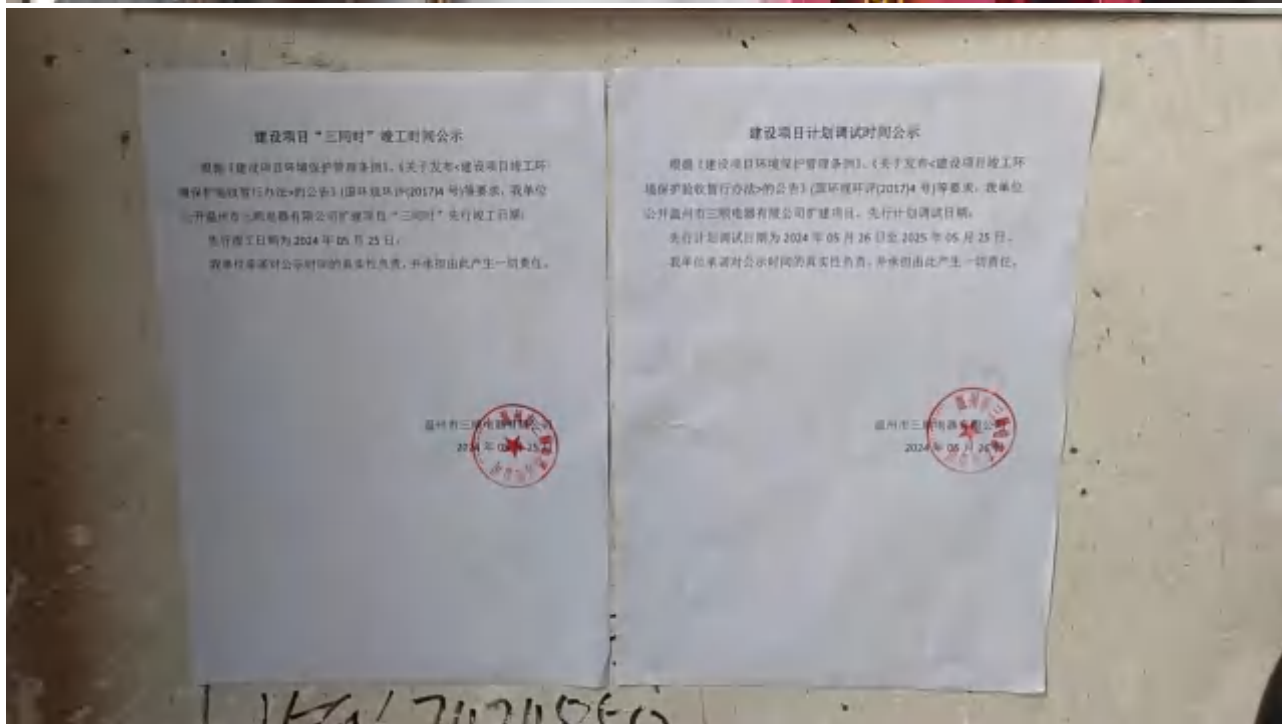 建设项目“三同时”竣工时间公示
根据《建设项目环境保护管理条例》、《关于发布<建设项目竣工环
境保护验收暂行办法>的公告》(国环规环评(2017)4 号)等要求，我单位
公开温州市三顺电器有限公司扩建项目“三同时”先行竣工日期：
先行竣工日期为 2024 年 05 月 25 日。
我单位承诺对公示时间的真实性负责，并承担由此产生一切责任。
温州市三顺电器有限公司
2024 年 05 月 25 日
建设项目计划调试时间公示
根据《建设项目环境保护管理条例》、《关于发布<建设项目竣工环
境保护验收暂行办法>的公告》(国环规环评(2017)4 号)等要求，我单位
公开温州市三顺电器有限公司扩建项目，先行计划调试日期：
先行计划调试日期为 2024 年 05 月 26 日至 2025 年 05 月 25 日。
我单位承诺对公示时间的真实性负责，并承担由此产生一切责任。
温州市三顺电器有限公司
2024 年 05 月 26 日